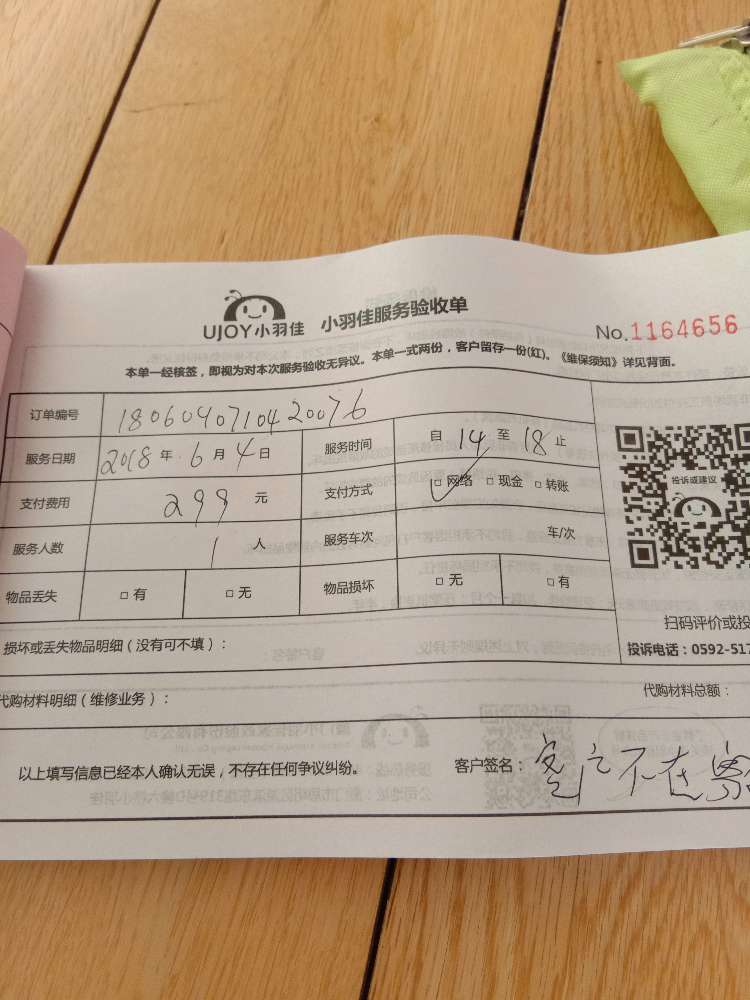 UJOY小羽佳 小羽佳服务验收单
No.1164656
本单一经核签，即视为对本次服务验收无异议。本单一式两份，客户留存一份(红)。《维保须知》详见背面。
订单编号 1806040710420076
服务日期 2018年 6月4日 服务时间 自 14 至 18 止
支付费用 299 元 支付方式 □网络 □现金 □转账
服务人数 1 人 服务车次 车/次
物品丢失 □有 □无 物品损坏 □无 □有
投诉或建议
扫码评价或投
投诉电话：0592-517
损坏或丢失物品明细（没有可不填）：
代购材料明细（维修业务）： 代购材料总额：
以上填写信息已经本人确认无误，不存在任何争议纠纷。 客户签名： 不在